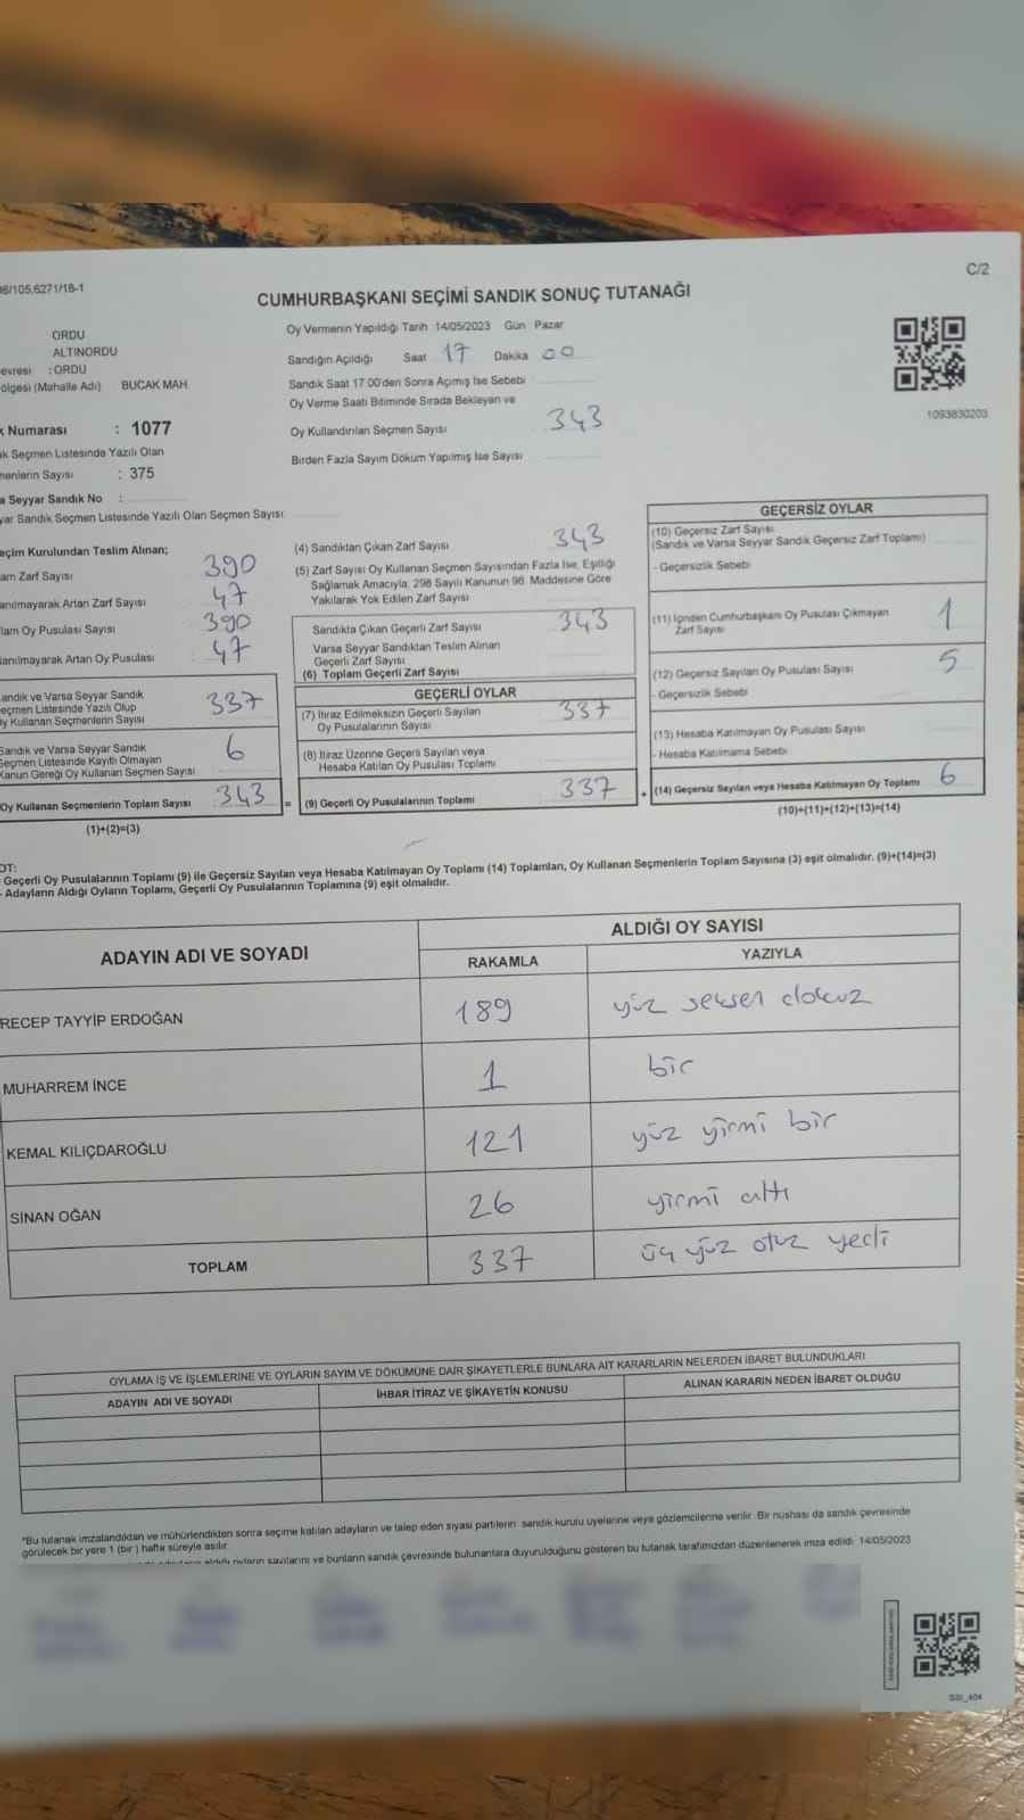 C/2
/105.6271/18-1
CUMHURBAŞKANI SEÇİMİ SANDIK SONUÇ TUTANAĞI
ORDU
ALTINORDU
: ORDU
(Mahalle Adı) BUCAK MAH.
Numarası : 1077
Seçmen Listesinde Yazılı Olan
Sayısı : 375
Seyyar Sandık No :
Sandık Seçmen Listesinde Yazılı Olan Seçmen Sayısı
Oy Vermenin Yapıldığı Tarih 14/05/2023 Gün Pazar
Sandığın Açıldığı Saat 17 Dakika 00
Sandık Saat 17:00'den Sonra Açılmış İse Sebebi
Oy Verme Saati Bitiminde Sırada Bekleyen ve
Oy Kullandırılan Seçmen Sayısı 343
Birden Fazla Sayım Döküm Yapılmış İse Sayısı
1093830203
Kurulundan Teslim Alınan;
Zarf Sayısı 390
Artan Zarf Sayısı 47
Oy Pusulası Sayısı 390
Artan Oy Pusulası 47
Sandık ve Varsa Seyyar Sandık
Seçmen Listesinde Yazılı Olup
Oy Kullanan Seçmenlerin Sayısı 337
Sandık ve Varsa Seyyar Sandık
Seçmen Listesinde Kayıtlı Olmayan
Kanun Gereği Oy Kullanan Seçmen Sayısı 6
Oy Kullanan Seçmenlerin Toplam Sayısı 343 =
(1)+(2)=(3)
(4) Sandıktan Çıkan Zarf Sayısı 343
(5) Zarf Sayısı Oy Kullanan Seçmen Sayısından Fazla İse, Eşitliği
Sağlamak Amacıyla, 298 Sayılı Kanunun 98. Maddesine Göre
Yakılarak Yok Edilen Zarf Sayısı
Sandıkta Çıkan Geçerli Zarf Sayısı 343
Varsa Seyyar Sandıktan Teslim Alınan
Geçerli Zarf Sayısı
(6) Toplam Geçerli Zarf Sayısı
GEÇERLİ OYLAR
(7) İtiraz Edilmeksizin Geçerli Sayılan
Oy Pusulalarının Sayısı 337
(8) İtiraz Üzerine Geçerli Sayılan veya
Hesaba Katılan Oy Pusulası Toplamı
(9) Geçerli Oy Pusulalarının Toplamı 337 +
GEÇERSİZ OYLAR
(10) Geçersiz Zarf Sayısı
(Sandık ve Varsa Seyyar Sandık Geçersiz Zarf Toplamı)
- Geçersizlik Sebebi
(11) İçinden Cumhurbaşkanı Oy Pusulası Çıkmayan
Zarf Sayısı 1
(12) Geçersiz Sayılan Oy Pusulası Sayısı 5
- Geçersizlik Sebebi
(13) Hesaba Katılmayan Oy Pusulası Sayısı
- Hesaba Katılmama Sebebi
(14) Geçersiz Sayılan veya Hesaba Katılmayan Oy Toplamı 6
(10)+(11)+(12)+(13)=(14)
OT:
Geçerli Oy Pusulalarının Toplamı (9) ile Geçersiz Sayılan veya Hesaba Katılmayan Oy Toplamı (14) Toplamları, Oy Kullanan Seçmenlerin Toplam Sayısına (3) eşit olmalıdır. (9)+(14)=(3)
- Adayların Aldığı Oyların Toplamı, Geçerli Oy Pusulalarının Toplamına (9) eşit olmalıdır.
ADAYIN ADI VE SOYADI ALDIĞI OY SAYISI
RAKAMLA YAZIYLA
RECEP TAYYİP ERDOĞAN 189 yüz seksen dokuz
MUHARREM İNCE 1 bir
KEMAL KILIÇDAROĞLU 121 yüz yirmi bir
SİNAN OĞAN 26 yirmi altı
TOPLAM 337 üç yüz otuz yedi
OYLAMA İŞ VE İŞLEMLERİNE VE OYLARIN SAYIM VE DÖKÜMÜNE DAİR ŞİKAYETLERLE BUNLARA AİT KARARLARIN NELERDEN İBARET BULUNDUKLARI
ADAYIN ADI VE SOYADI İHBAR İTİRAZ VE ŞİKAYETİN KONUSU ALINAN KARARIN NEDEN İBARET OLDUĞU
*Bu tutanak imzalandıktan ve mühürlendikten sonra seçime katılan adayların ve talep eden siyasi partilerin sandık kurulu üyelerine veya gözlemcilerine verilir. Bir nüshası da sandık çevresinde
görülecek bir yere 1 (bir) hafta süreyle asılır.
aldığı oyların sayılarını ve bunların sandık çevresinde bulunanlara duyurulduğunu gösteren bu tutanak tarafımızdan düzenlenerek imza edildi. 14/05/2023